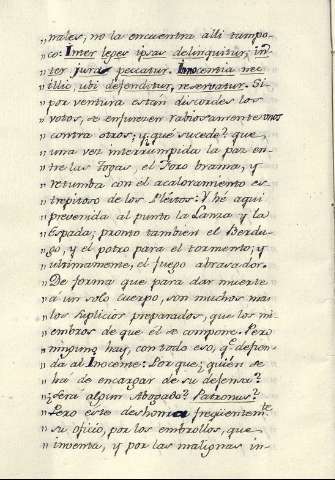 „nales; no la encuentra alli tampo-
„co: Inter leges ipsas delinquitur, in-
„ter jura peccatur. Innocentia nec
„illic, ubi defenditur, reservatur. Si
„por ventura estàn discordes los
„votos, se enfurecen rabiosamente unos
„contra otros; y què sucede? que
„una vez interrumpida la paz en-
„tre las Togas, el Foro brama, y
„retumba con el acaloramiento es-
„trepitoso de los Pléitos: Y hé aqui
„prevenida al punto la Lanza y la
„Espada; promto tambien el Berdu-
„go, y el potro para el tormento; y
„ultimamente, el fuego abrasador.
„De forma que para dar muerte
„a un solo cuerpo, son muchos mas
„los suplicios preparados, que los mi-
„embros de que él se compone. Pero
„ninguno hay, con todo eso, q.e defien-
„da al Inocente: Por que, quièn se
„ha de encargar de su defensa?
„Serà algun Abogado? Patronus?
„Pero este deshonra freqüentem.te
„su oficio, por los embrollos, que
„inventa, y por las malignas in-